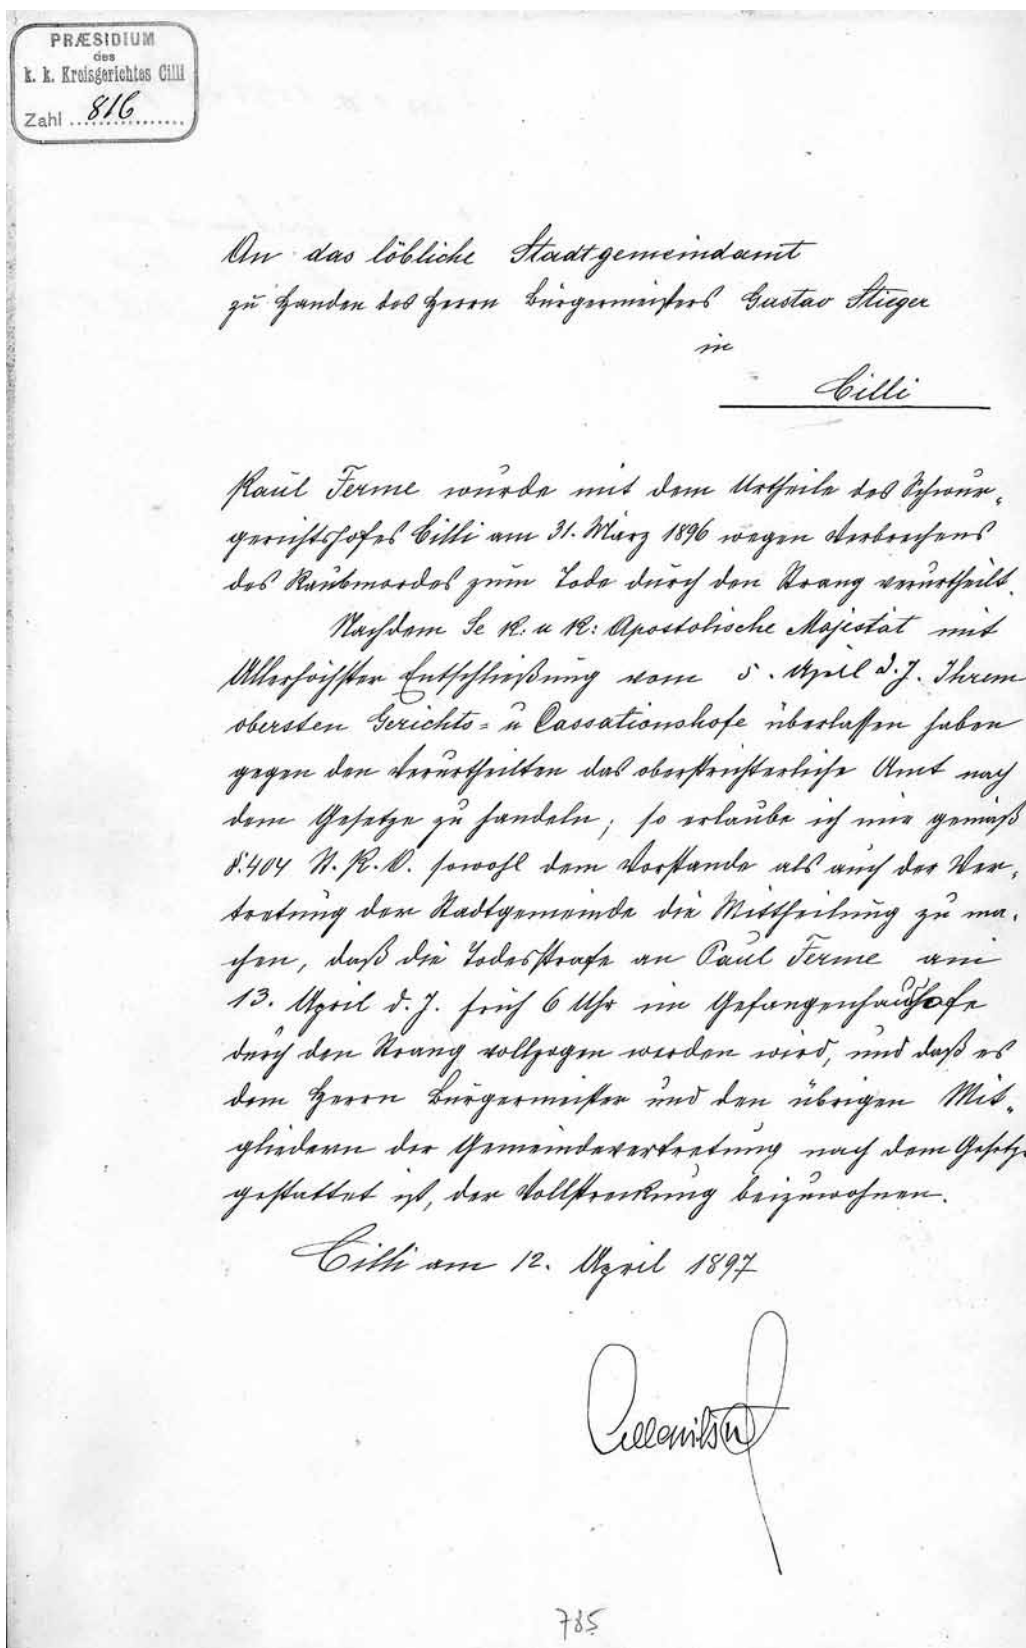 PRÆSIDIUM
des
k. k. Kreisgerichtes Cilli
Zahl 816
An das löbliche Stadtgemeindamt
zu Handen des Herrn Bürgermeisters Gustav Stieger
in
Cilli
Paul Ferme wurde mit dem Urtheile des Schwur-
gerichtshofes Cilli am 31. März 1896 wegen Verbrechens
des Raubmordes zum Tode durch den Strang verurtheilt.
Nachdem Se K: u K: Apostolische Majestät mit
Allerhöchster Entschließung vom 5. April d. J. Ihrem
obersten Gerichts- u Cassationshofe überlassen haben
gegen den Verurtheilten das oberstrichterliche Amt nach
dem Gesetze zu handeln; so erlaube ich mir gemäß
§. 404 St. P. O. sowohl dem Vorstande als auch der Ver-
tretung der Stadtgemeinde die Mittheilung zu ma-
chen, daß die Todesstrafe an Paul Ferme am
13. April d. J. früh 6 Uhr im Gefangenhaushofe
durch den Strang vollzogen werden wird, und daß es
dem Herrn Bürgermeister und den übrigen Mit-
gliedern der Gemeindevertretung nach dem Gesetze
gestattet ist, der Vollstreckung beizuwohnen.
Cilli am 12. April 1897
785